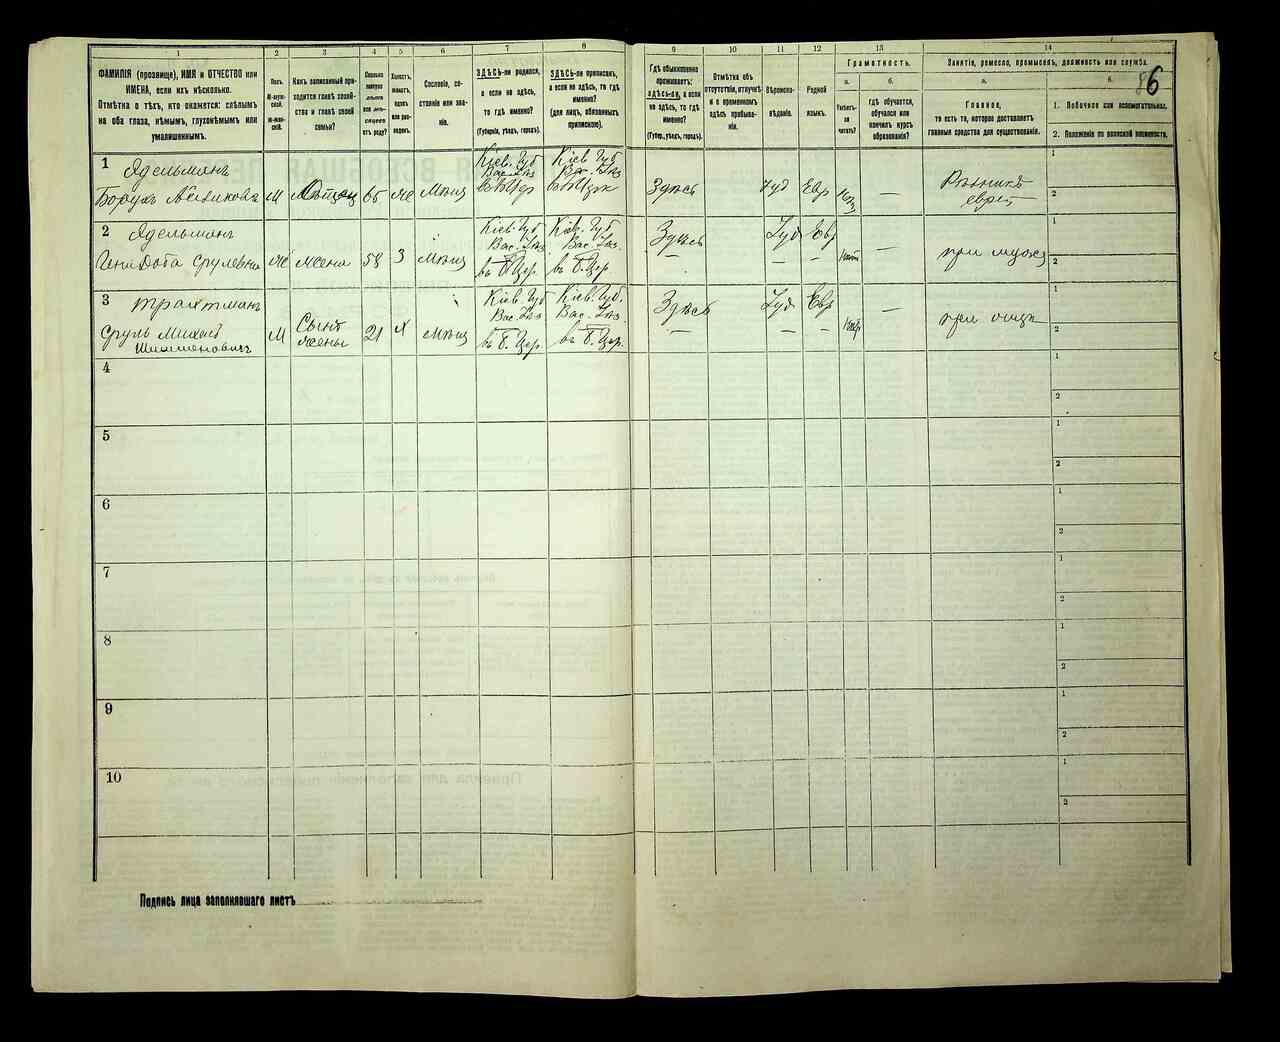 1 2 3 4 5 6 7 8 9 10 11 12 13 14
ФАМИЛІЯ (прозвище), ИМЯ и ОТЧЕСТВО или
ИМЕНА, если ихъ нѣсколько.
Отмѣтка о тѣхъ, кто окажется: слѣпымъ
на оба глаза, нѣмымъ, глухонѣмымъ или
умалишеннымъ.
Полъ.
М-муж-
ской.
Ж-жен-
скій.
Какъ записанный при-
ходится главѣ хозяй-
ства и главѣ своей
семьи?
Сколько
минуло
лѣтъ
или мѣ-
сяцевъ
отъ роду?
Холостъ,
женатъ,
вдовъ
или раз-
веденъ.
Сословіе, со-
стояніе или зва-
ніе.
ЗДѢСЬ-ли родился,
а если не здѣсь,
то гдѣ именно?
(Губернія, уѣздъ, городъ).
ЗДѢСЬ-ли приписанъ,
а если не здѣсь, то гдѣ
именно?
(для лицъ, обязанныхъ
припискою).
Гдѣ обыкновенно
проживаетъ:
здѣсь-ли, а если
не здѣсь, то гдѣ
именно?
(Губер., уѣздъ, городъ).
Отмѣтка объ
отсутствіи, отлучкѣ
и о временномъ
здѣсь пребыва-
ніи.
Вѣроиспо-
вѣданіе.
Родной
языкъ.
Грамотность.
а. б.
Умѣетъ-
ли
читать?
гдѣ обучается,
обучался или
кончилъ курсъ
образованія?
Занятіе, ремесло, промыселъ, должность или служба.
а. б.
Главное,
то есть то, которое доставляетъ
главныя средства для существованія.
1. Побочное или вспомогательное.
2. Положеніе по воинской повинности.
86
1 Эдельманъ
Борухъ
М 65 же Мѣщ
Кіев. Губ
Вас. Уѣз
Кіев Губ
Вас. Уѣз
Здѣсь Іуд Евр —
1
2
2 Эдельманъ
Доба Срулевна
же жена 58 З Мѣщ
Кіев. Губ
Вас. Уѣз
въ Б. Цер.
Кіев. Губ
Вас. Уѣз.
въ Б. Цер.
Здѣсь
—
Іуд Евр
— —
—
при мужѣ
1
2
3 Трахтманъ
Сруль
Шиманов
М Сынъ
жены
21 Х Мѣщ
Кіев. Губ
Вас. Уѣз
въ Б. Цер.
Кіев. Губ.
Вас. Уѣз
въ Б. Цер.
Здѣсь
—
Іуд Евр
— —
—
при отцѣ
1
2
4
1
2
5
1
2
6
1
2
7
1
2
8
1
2
9
1
2
10
1
2
Подпись лица заполнявшаго листъ